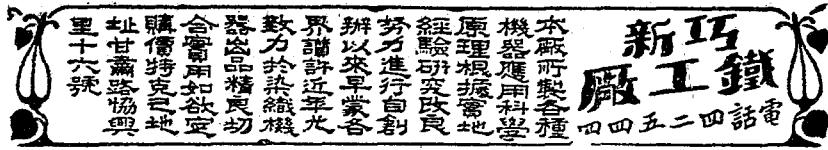 巧新
鐵工廠
電話四二五四四
本廠所製各種
機器應用科學
原理根據實地
經驗研究改良
努力進行自創
辦以來早蒙各
界讚許近年尤
致力於染織機
器出品精良切
合實用如欲定
購價特克己地
址甘肅路協興
里十六號